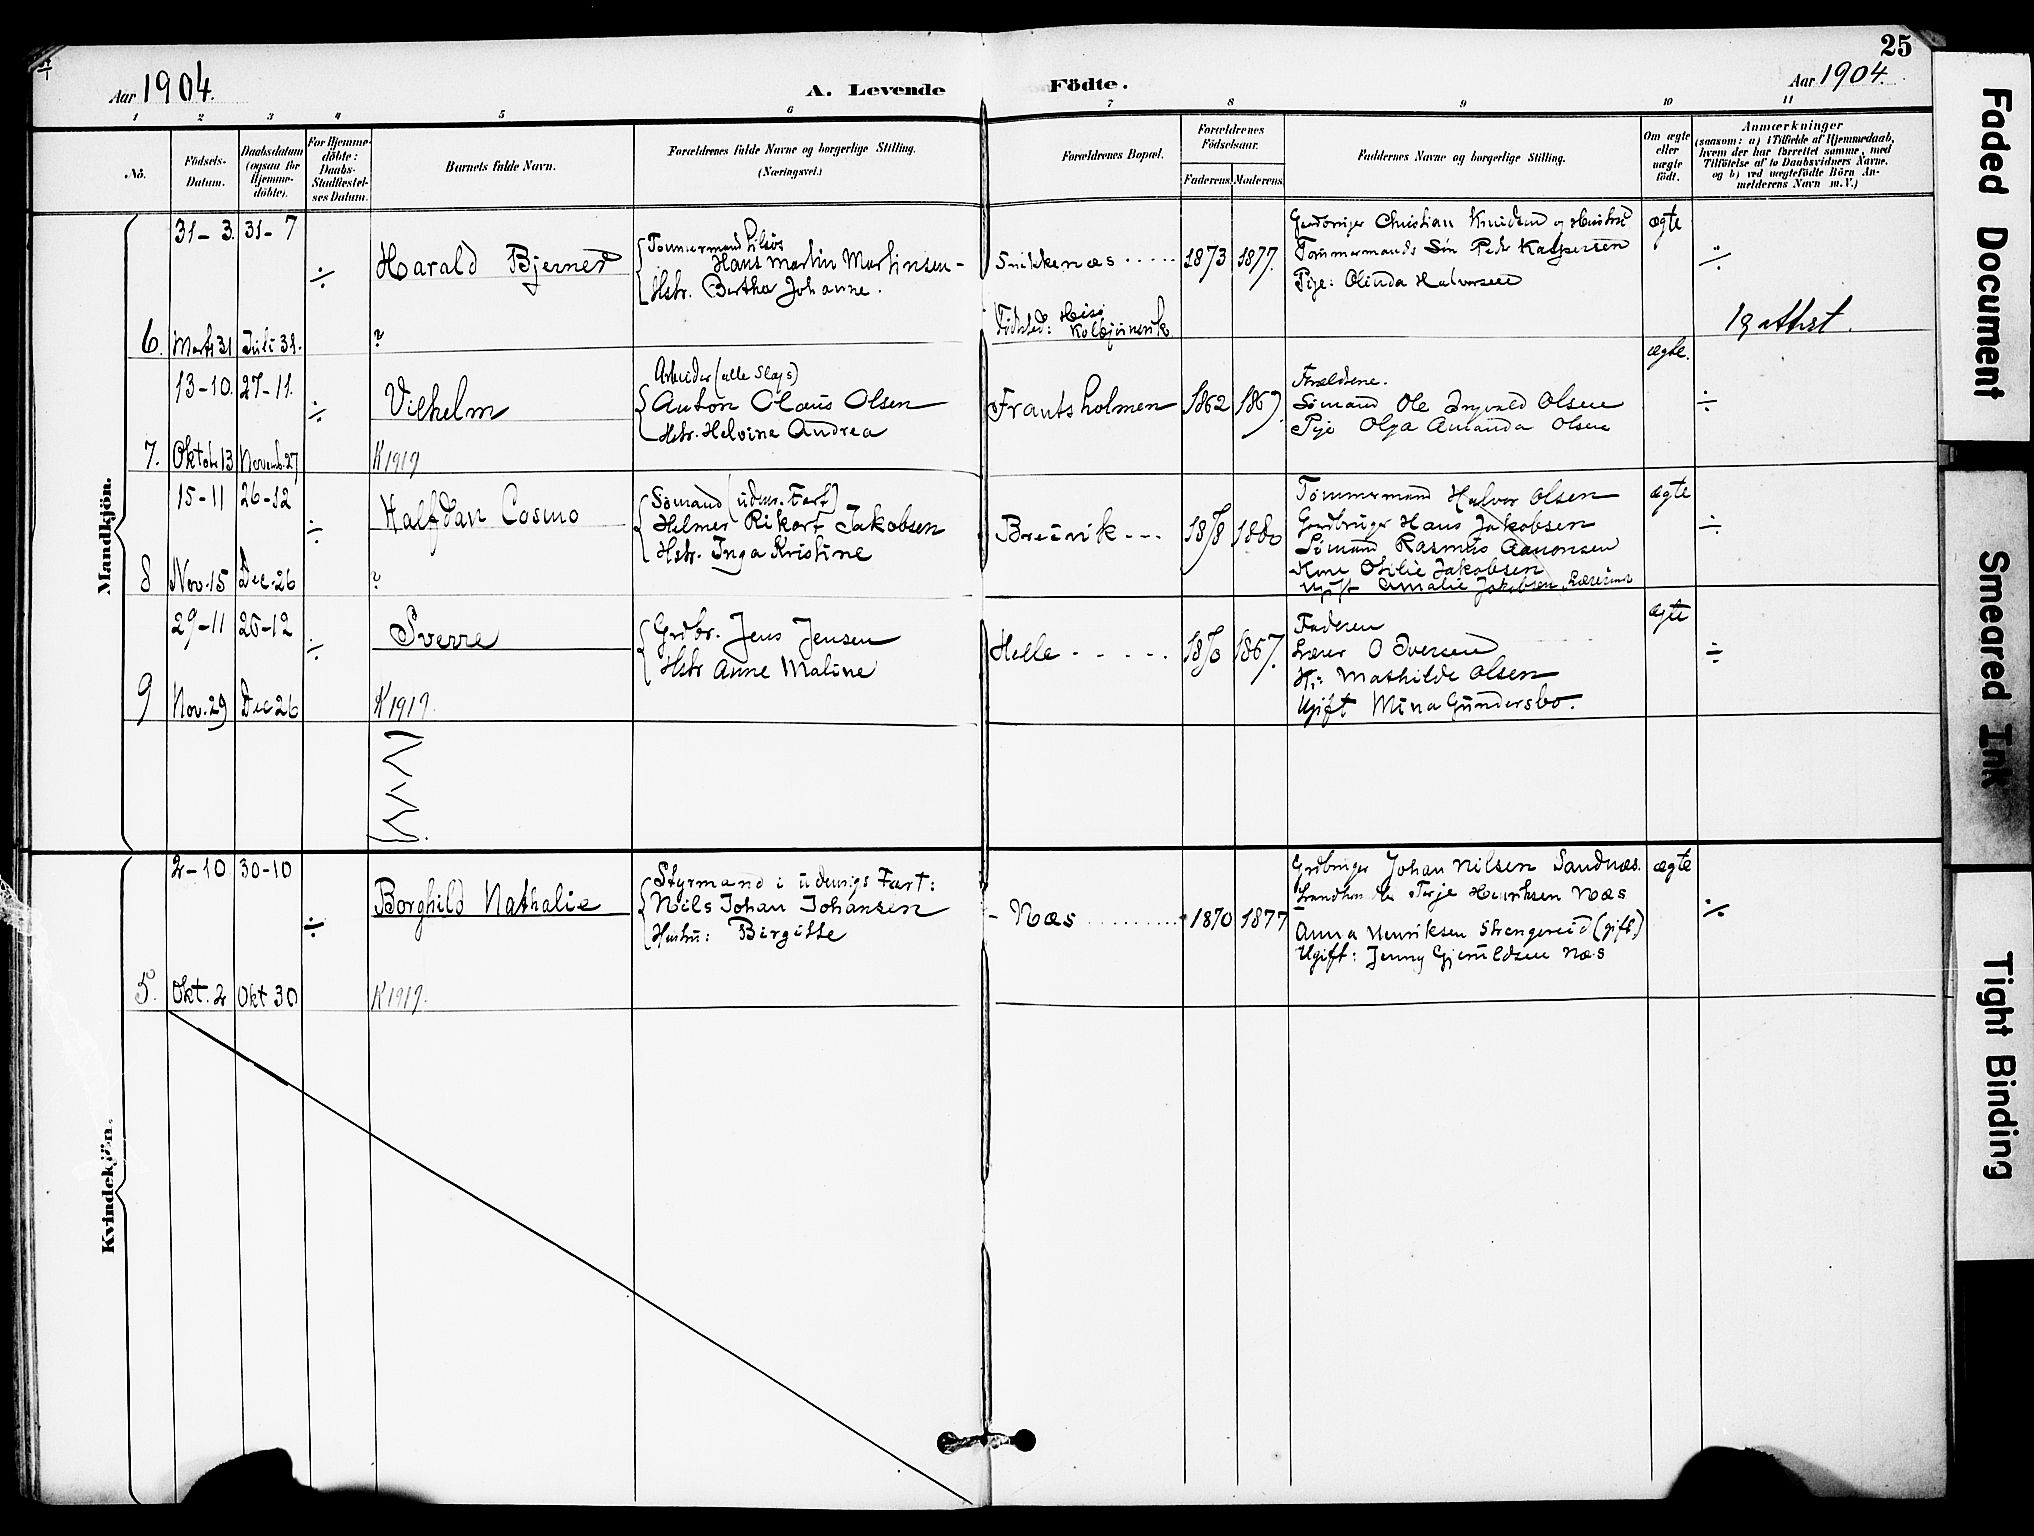 25
Aar 1904.
A. Levende Födte.
Aar 1904.
1 2 3 4 5 6 7 8 9 10 11
No.
Födsels-
Datum.
Daabsdatum
(ogsaa for
Hjemme-
döbte).
For Hjemme-
döbte:
Daabs-
Stadfæstel-
ses Datum.
Barnets fulde Navn.
Forældrenes fulde Navne og borgerlige Stilling.
(Næringsvei.)
Forældrenes Bopæl.
Forældrenes
Födselsaar.
Faderens Moderens
Faddernes Navne og borgerlige Stilling.
Om ægte
eller
uægte
födt.
Anmærkninger
(saasom: a) i Tilfælde af Hjemmedaab,
hvem der har forrettet samme, med
Tilföielse af to Daabsvidners Navne.
og b) ved uægtefödte Börn An-
melderens Navn m. V.)
Mandkjön.
31-3. 31-7
÷
Harald Bjerned
Tømmermand
Hans Martin Martinsen -
Hstr. Bertha Johanne.
Snikkenæs
1873 1877.
Gardbruger Christian Knudsen og Hustru
Tømmermands Søn Peder Kaspersen
Pige: Olinda Halvorsen
ægte
÷
6. Marts 31 Juli 31.
?
Fødested: Hisø
Kolbjørnsvik
1 g attest.
13-10. 27-11.
÷
Vilhelm
Arbeider (alle Slags)
Anton Olaus Olsen
Hstr. Helvine Andrea
Frantsholmen
1862 1869.
Forældrene.
Sømand Ole Ingvald Olsen
Pige Olga Amanda Olsen
ægte.
÷
7. Oktober 13 Novemb. 27
K 1919
15-11 26-12
÷
Halfdan Cosmo
Sømand (udenr. Fart)
Helmer Rikart Jakobsen
Hstr. Inga Kristine
Breivik
1878 1880
Tømmermand Halvor Olsen
Gardbruger Hans Jakobsen
Sømand Rasmus Aanonsen
Kone Otilie Jakobsen
Ugift Amalie Jakobsen, Lærerinde
ægte
÷
8 Nov. 15 Dec. 26
?
29-11 26-12
÷
Sverre
Grdbr. Jens Jensen
Hstr Anne Maline
Helle
1870 1867.
Faderen
Lærer O Iversen
H.: Mathilde Olsen
Ugift Mina Gundersbo.
ægte
÷
9 Nov. 29 Dec 26
K 1919.
Kvindekjön.
2-10 30-10
÷
Borghild Nathalie
Styrmand i udenrigs Fart:
Nils Johan Johansen
Hustru: Birgitte
Næs
1870 1877
Grdbruger Johan Nilsen Sandnæs.
Terje Henriksen Næs
Anna Henriksen Strengereid (gift)
Ugift: Jenny Gjeruldsen Næs
ægte
÷
5. Okt. 2 Okt 30
K 1919.
Faded Document
Smeared Ink
Tight Binding